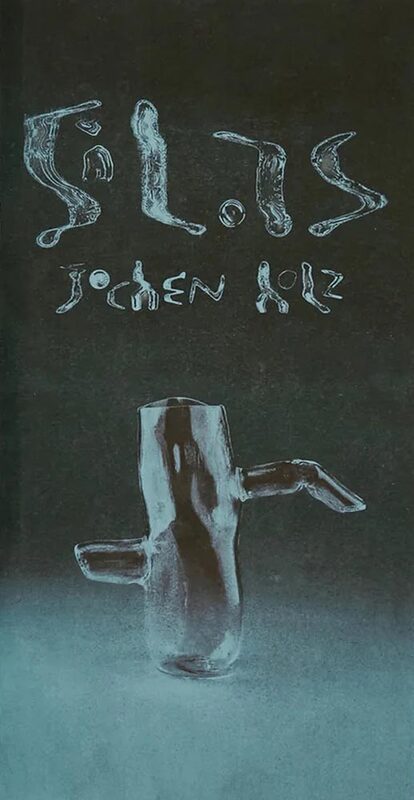 GLAS
JOCHEN HOLZ